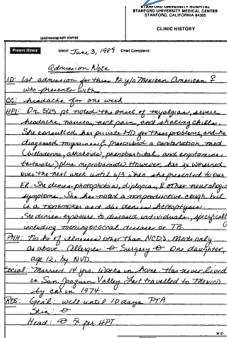 STANFORD UNIVERSITY HOSPITAL
STANFORD UNIVERSITY MEDICAL CENTER
STANFORD, CALIFORNIA 94305
CLINIC HISTORY
Present Illness Date: June 3, 1987 Chief Complaint:
Admission Note
ID: 1st admission for this 32 y/o Mexican American ♀
who presents with
CC: headache for one week
HPI: On 5/25 pt noted the onset of myalgias, severe
headache, nausea, neck pain, and shaking chills.
She consulted her private MD for these problems, and he
diagnosed migraines & prescribed a combination med
(belladonna, alkaloids, phenobarbital, and ergotamine
tartrate) plus meprobamate. However, her sx worsened
over the next week until 6/3 when she presented to our
ER. She denies photophobia, diplopia, & other neurologic
symptoms. She has noted a nonproductive cough but
is a nonsmoker and denies hemoptysis.
She denies exposure to diseased individuals, specifically
including meningococcal disease or TB.
PMH: No hx of illnesses other than NCDs. Meds only
as above. Allergies: ∅ Surgery: ∅ One daughter,
age 12, by NVD.
Social: Married 14 yrs. Works in home. Has never lived
in San Joaquin Valley (but travelled to Mexico
by car in 1974.
ROS: Genl: well until 10 days PTA
Skin: ∅
Head: ∅ x per HPI